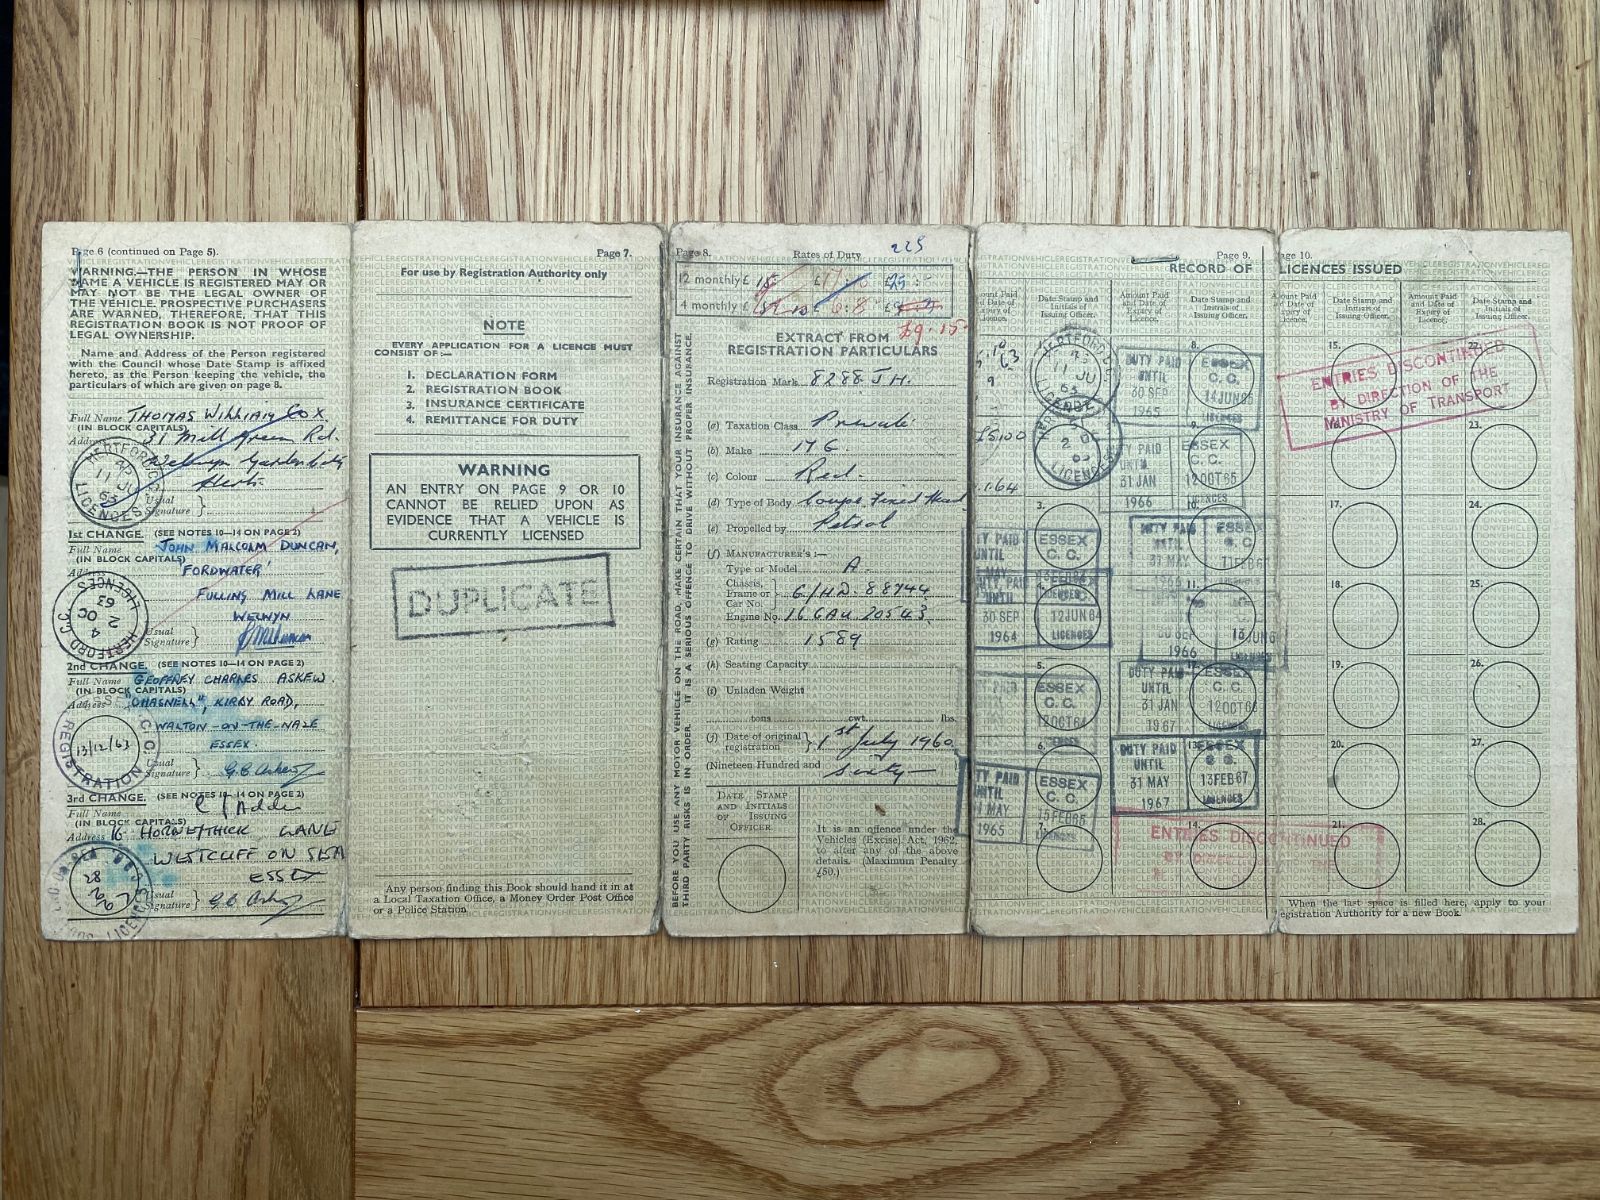 Page 6 (continued on Page 5).
WARNING.—THE PERSON IN WHOSE
NAME A VEHICLE IS REGISTERED MAY OR
MAY NOT BE THE LEGAL OWNER OF
THE VEHICLE. PROSPECTIVE PURCHASERS
ARE WARNED, THEREFORE, THAT THIS
REGISTRATION BOOK IS NOT PROOF OF
LEGAL OWNERSHIP.
Name and Address of the Person registered
with the Council whose Date Stamp is affixed
hereto, as the Person keeping the vehicle, the
particulars of which are given on page 8.
Full Name THOMAS WILLIAM COX
(IN BLOCK CAPITALS)
Address 31 Mill Green Rd.
Welwyn Garden City
Herts
HERTFORD
11 JU
63
LICENCES
Usual
Signature
1st CHANGE. (SEE NOTES 10—14 ON PAGE 2)
Full Name JOHN MALCOLM DUNCAN,
(IN BLOCK CAPITALS)
Address 'FORDWATER'
FULLING MILL LANE
WELWYN
HERTFORD C.C.
4
2 OC
63
LICENCES
Usual
Signature
2nd CHANGE. (SEE NOTES 10—14 ON PAGE 2)
Full Name GEOFFREY CHARLES ASKEW.
(IN BLOCK CAPITALS)
Address KIRBY ROAD,
WALTON-ON-THE-NAZE
ESSEX.
C.C.
13/12/63
REGISTRATION
Usual
Signature
3rd CHANGE. (SEE NOTES 10—14 ON PAGE 2)
Full Name
(IN BLOCK CAPITALS)
Address 16 LANE
WESTCLIFF ON SEA
ESSEX
28
LICENCES
Usual
Signature
Page 7.
For use by Registration Authority only
NOTE
EVERY APPLICATION FOR A LICENCE MUST
CONSIST OF:—
1. DECLARATION FORM
2. REGISTRATION BOOK
3. INSURANCE CERTIFICATE
4. REMITTANCE FOR DUTY
WARNING
AN ENTRY ON PAGE 9 OR 10
CANNOT BE RELIED UPON AS
EVIDENCE THAT A VEHICLE IS
CURRENTLY LICENSED
DUPLICATE
Any person finding this Book should hand it in at
a Local Taxation Office, a Money Order Post Office
or a Police Station
Page 8.
Rates of Duty
225
12 monthly £ 15
4 monthly £
£9.15
EXTRACT FROM
REGISTRATION PARTICULARS
BEFORE YOU USE ANY MOTOR VEHICLE ON THE ROAD, MAKE CERTAIN THAT YOUR INSURANCE AGAINST
THIRD PARTY RISKS IS IN ORDER. IT IS A SERIOUS OFFENCE TO DRIVE WITHOUT PROPER INSURANCE.
Registration Mark 8288 JH.
(a) Taxation Class Private
(b) Make MG.
(c) Colour Red.
(d) Type of Body Coupe Fixed Head
(e) Propelled by Petrol
(f) MANUFACTURER'S:—
Type or Model A.
Chassis,
Frame or
Car No. G/HD. 88944
Engine No. 16 GAU 20543.
(g) Rating 1589
(h) Seating Capacity
(i) Unladen Weight
tons cwt. lbs.
(j) Date of original
registration 1st July 1960
(Nineteen Hundred and Sixty
DATE STAMP
AND INITIALS
OF ISSUING
OFFICER
It is an offence under the
Vehicles (Excise) Act, 1962,
to alter any of the above
details. (Maximum Penalty
£50.)
Page 9.
RECORD OF
Date Stamp and
Initials of
Issuing Officer.
Amount Paid
and Date of
Expiry of
Licence.
Date Stamp and
Initials of
Issuing Officer.
HERTFORD
11 JU
63
LICENCES
£5.10.0
1.64
2 OC
63
LICENCES
3.
ESSEX
C.C.
LICENCES
DUTY PAID
UNTIL
30 SEP
1964
12 JUN 64
LICENCES
5.
ESSEX
C.C.
12 OCT 64
6.
DUTY PAID
UNTIL
31 MAY
1965
ESSEX
C.C.
15 FEB 65
LICENCES
8.
DUTY PAID
UNTIL
30 SEP
1965
ESSEX
C.C.
14 JUN 65
LICENCES
9.
DUTY PAID
UNTIL
31 JAN
1966
ESSEX
C.C.
12 OCT 65
LICENCES
10.
DUTY PAID
UNTIL
31 MAY
1966
ESSEX
C.C.
11.
30 SEP
1966
LICENCES
12.
DUTY PAID
UNTIL
31 JAN
1967
ESSEX
C.C.
12 OCT 66
LICENCES
13.
DUTY PAID
UNTIL
31 MAY
1967
ESSEX
C.C.
13 FEB 67
LICENCES
14.
ENTRIES DISCONTINUED
Page 10.
LICENCES ISSUED
Amount Paid
and Date of
Expiry of
Licence.
Date Stamp and
Initials of
Issuing Officer.
Amount Paid
and Date of
Expiry of
Licence.
Date Stamp and
Initials of
Issuing Officer.
ENTRIES DISCONTINUED
BY DIRECTION OF THE
MINISTRY OF TRANSPORT
15.
22.
16.
23.
17.
24.
18.
25.
19.
26.
20.
27.
21.
28.
When the last space is filled here, apply to your
Registration Authority for a new Book.